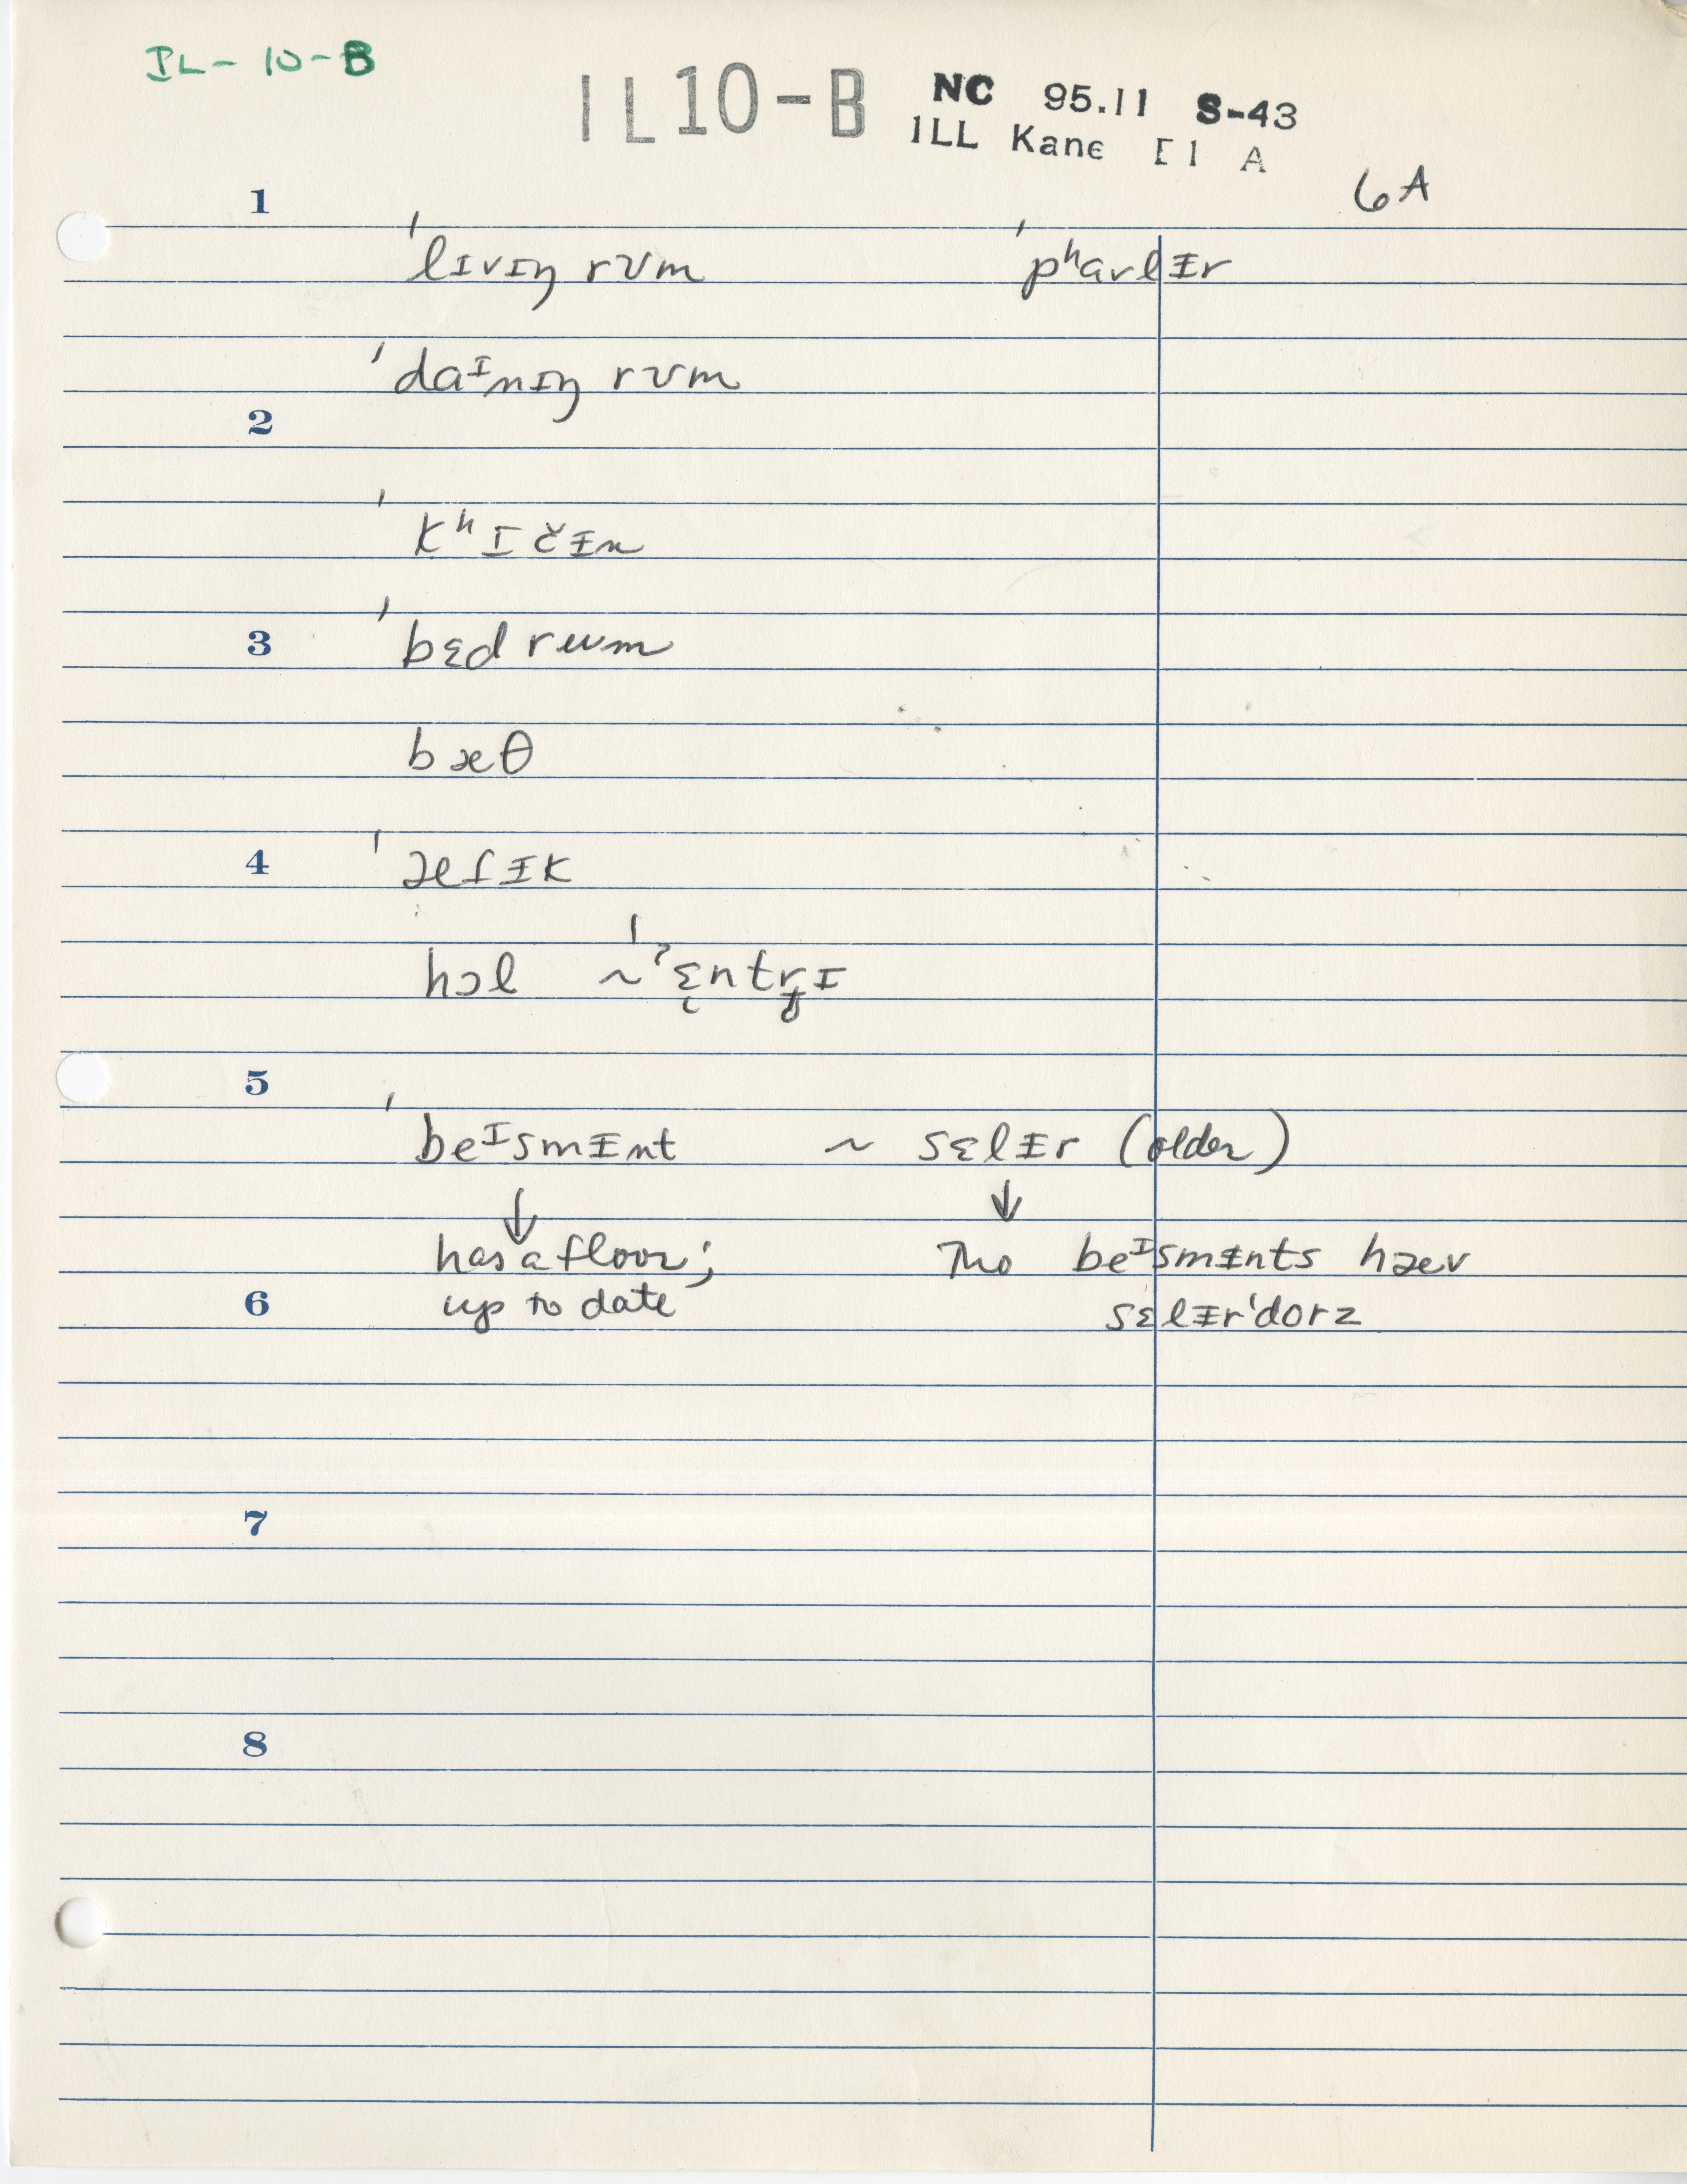 IL- 10-B
IL10-B NC 95.11 S-43
ILL Kane E1 A
6A
1
ˈlɪvɪŋ rʊm ˈpʰarlɨr
ˈdaᶦnɪŋ rʊm
2
ˈkʰɪčɨn
3 ˈbɛd rum
bæθ
4 ˈæɾɨk
hɔl ~ ˈˀɛntrɪ
5
ˈbeᶦsmɨnt ~ sɛlɨr (older)
↓ ↓
has a floor; Tho beᶦsmɨnts hæv
6 up to date sɛlɨrˈdorz
7
8